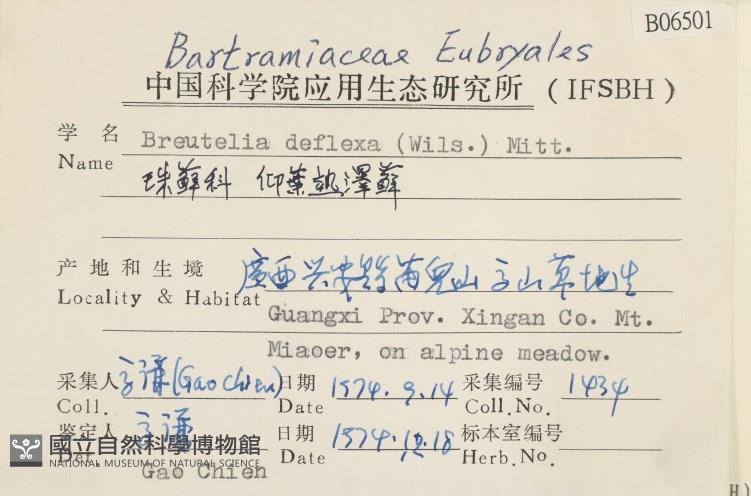 B06501
Bartramiaceae Eubryales
中国科学院应用生态研究所 (IFSBH)
学名 Breutelia deflexa (Wils.) Mitt.
Name
珠蘚科 仰葉熱澤蘚
产地和生境 廣西兴安县苗兒山高山草地生
Locality & Habitat Guangxi Prov. Xingan Co. Mt.
Miaoer, on alpine meadow.
采集人 高谦 (Gao Chien) 日期 1974.9.14 采集编号 1434
Coll. Date Coll.No.
鉴定人 高谦 日期 1974.12.18 标本室编号
Det. Date Herb.No.
Gao Chien
國立自然科學博物館
NATIONAL MUSEUM OF NATURAL SCIENCE
H)